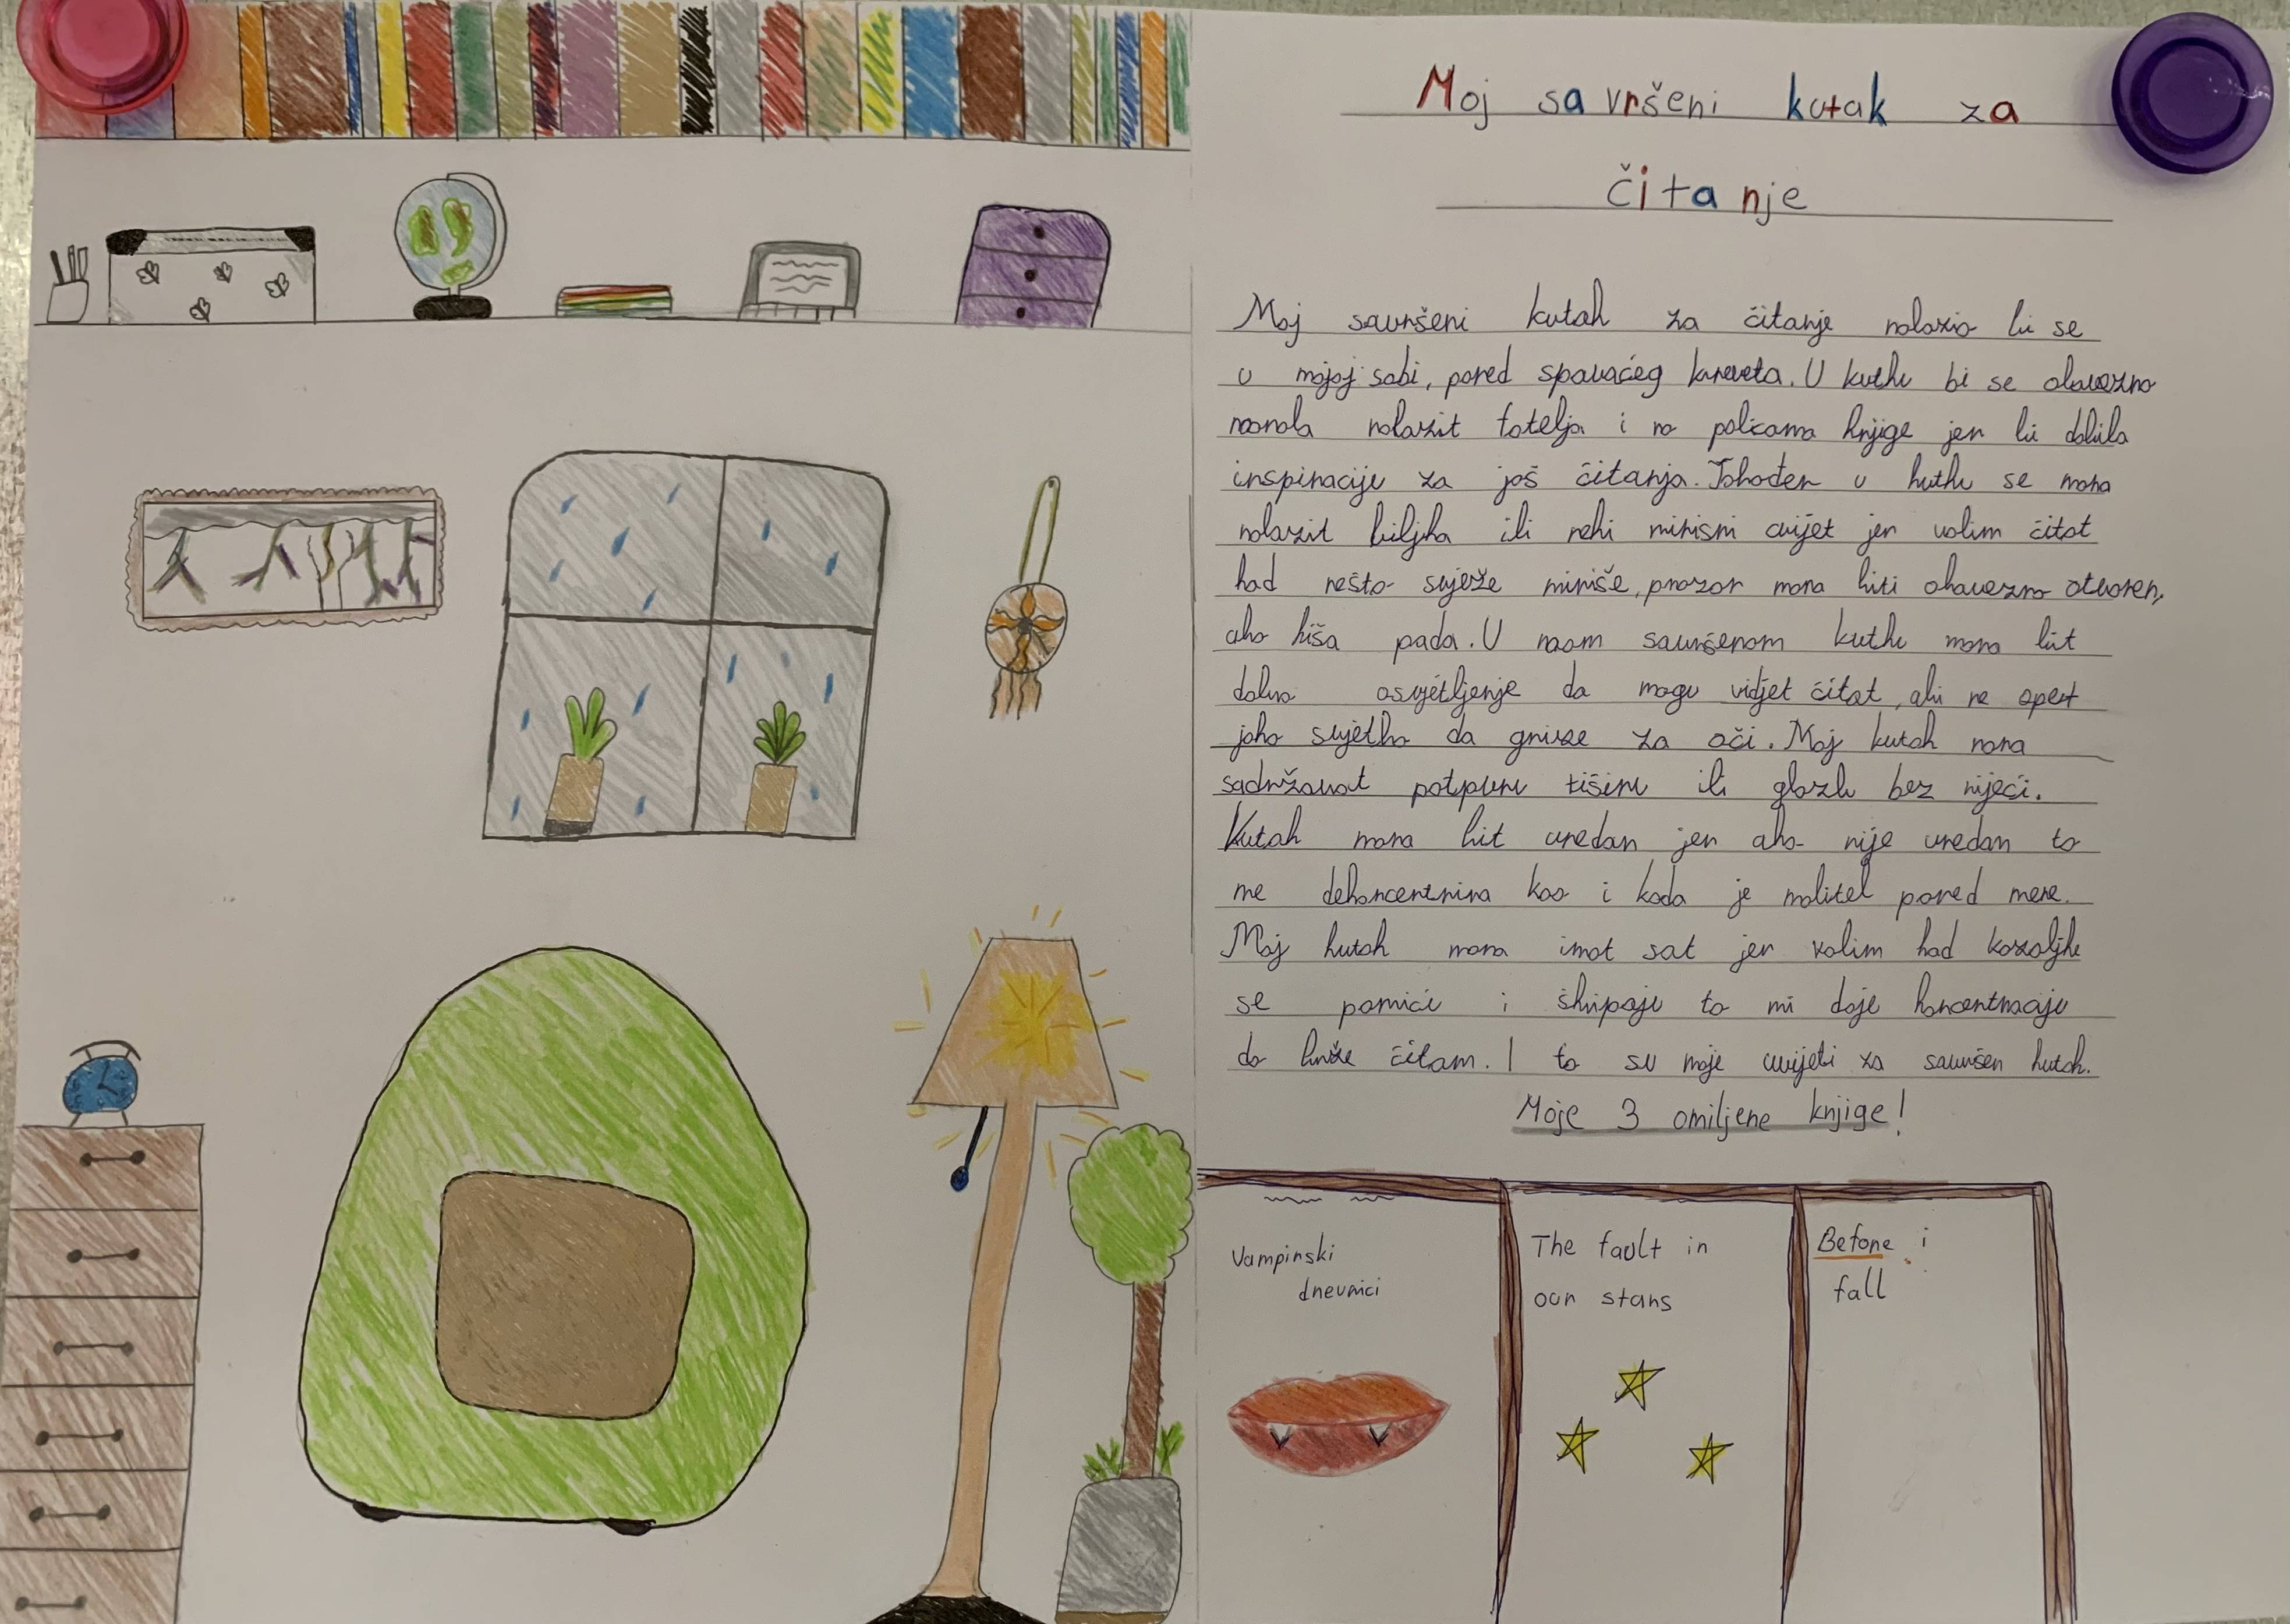 Moj savršeni kutak za
čitanje
Moj savršeni kutak za čitanje nalazio bi se
u mojoj sobi, pored spavaćeg kreveta. U kutku bi se obavezno
morala nalazit fotelja i na policama knjige jer bi dobila
inspiraciju za još čitanja. Također u kutku se mora
nalazit biljka ili neki mirisni cvijet jer volim čitat
kad nešto svježe miriše, prozor mora biti obavezno otvoren,
ako kiša pada. U mom savršenom kutku mora bit
dobro osvjetljenje da mogu vidjet čitat, ali ne opet
jako svjetlo da grize za oči. Moj kutak mora
sadržavat potpunu tišinu ili glazbu bez riječi.
Kutak mora bit uredan jer ako nije uredan to
me dekoncentrira kao i kada je mobitel pored mene.
Moj kutak mora imat sat jer volim kad kazaljke
se pomiču i škripaju to mi daje koncentraciju
da brže čitam. I to su moje uvijeti za savršen kutak.
Moje 3 omiljene knjige!
Vampirski
dnevnici
The fault in
our stars
Before i
fall